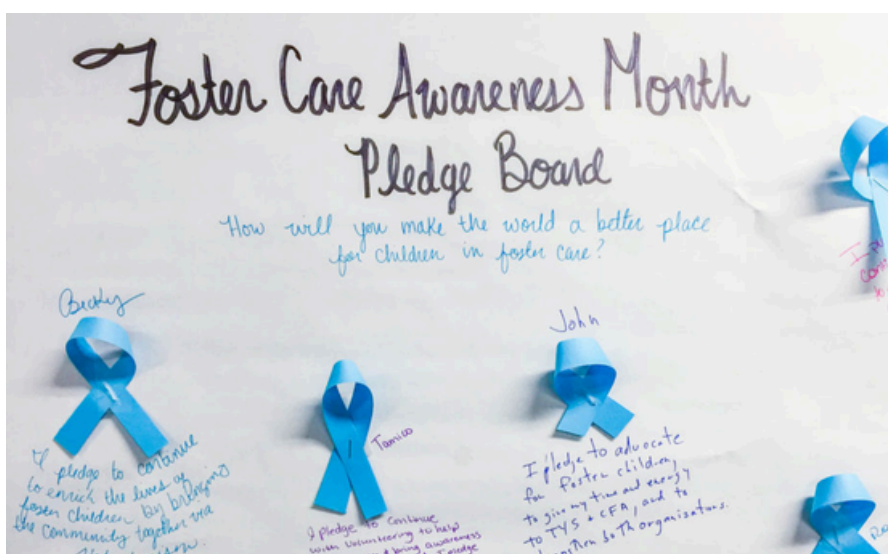 Foster Care Awareness Month
Pledge Board
How will you make the world a better place
for children in foster care?
Becky
I pledge to continue
to enrich the lives of
foster children by bringing
the community together via
Tamico
I pledge to continue
with volunteering to help
bring awareness
John
I pledge to advocate
for foster children,
to give my time and energy
to TYS + CFA, and to
both organizations.
I